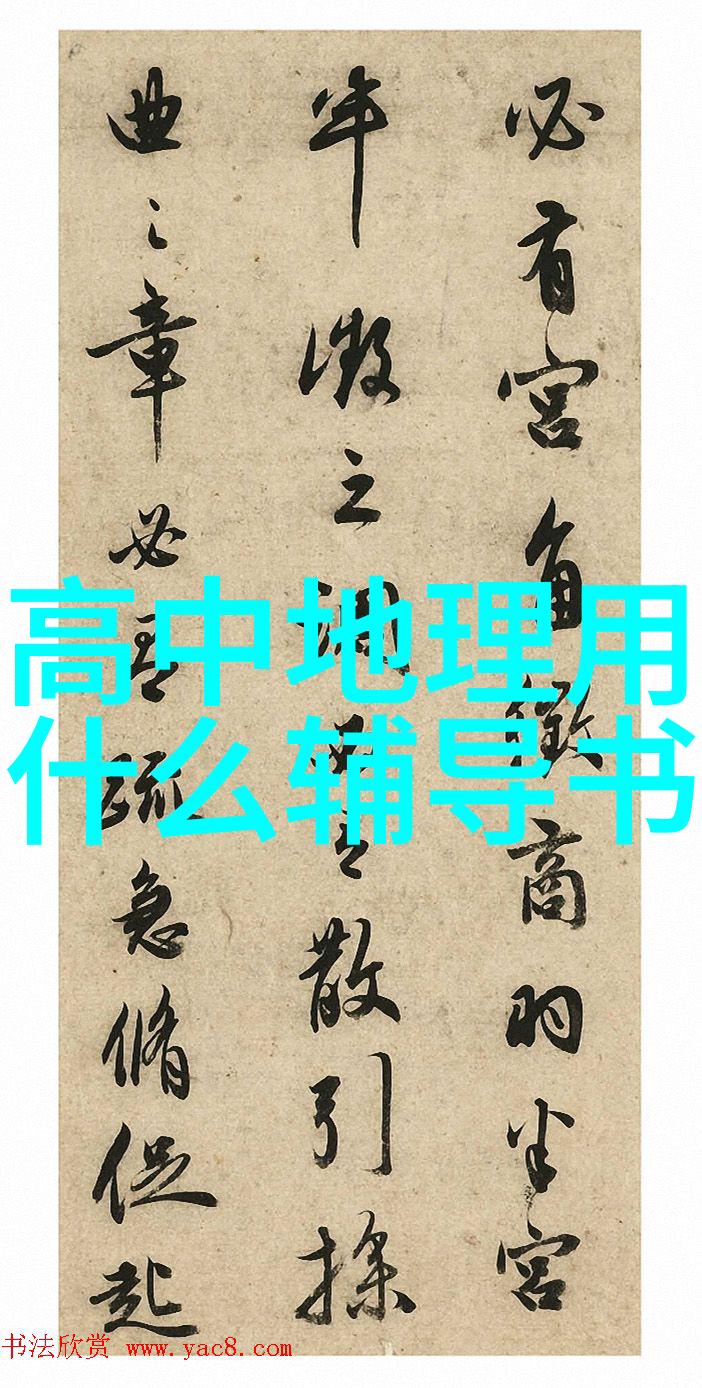 必有宫角徵商羽半宫
半徵之调散引操
曲之章必疏急脩促起
高中地理用
什么辅导书
书法欣赏 www.yac8.com